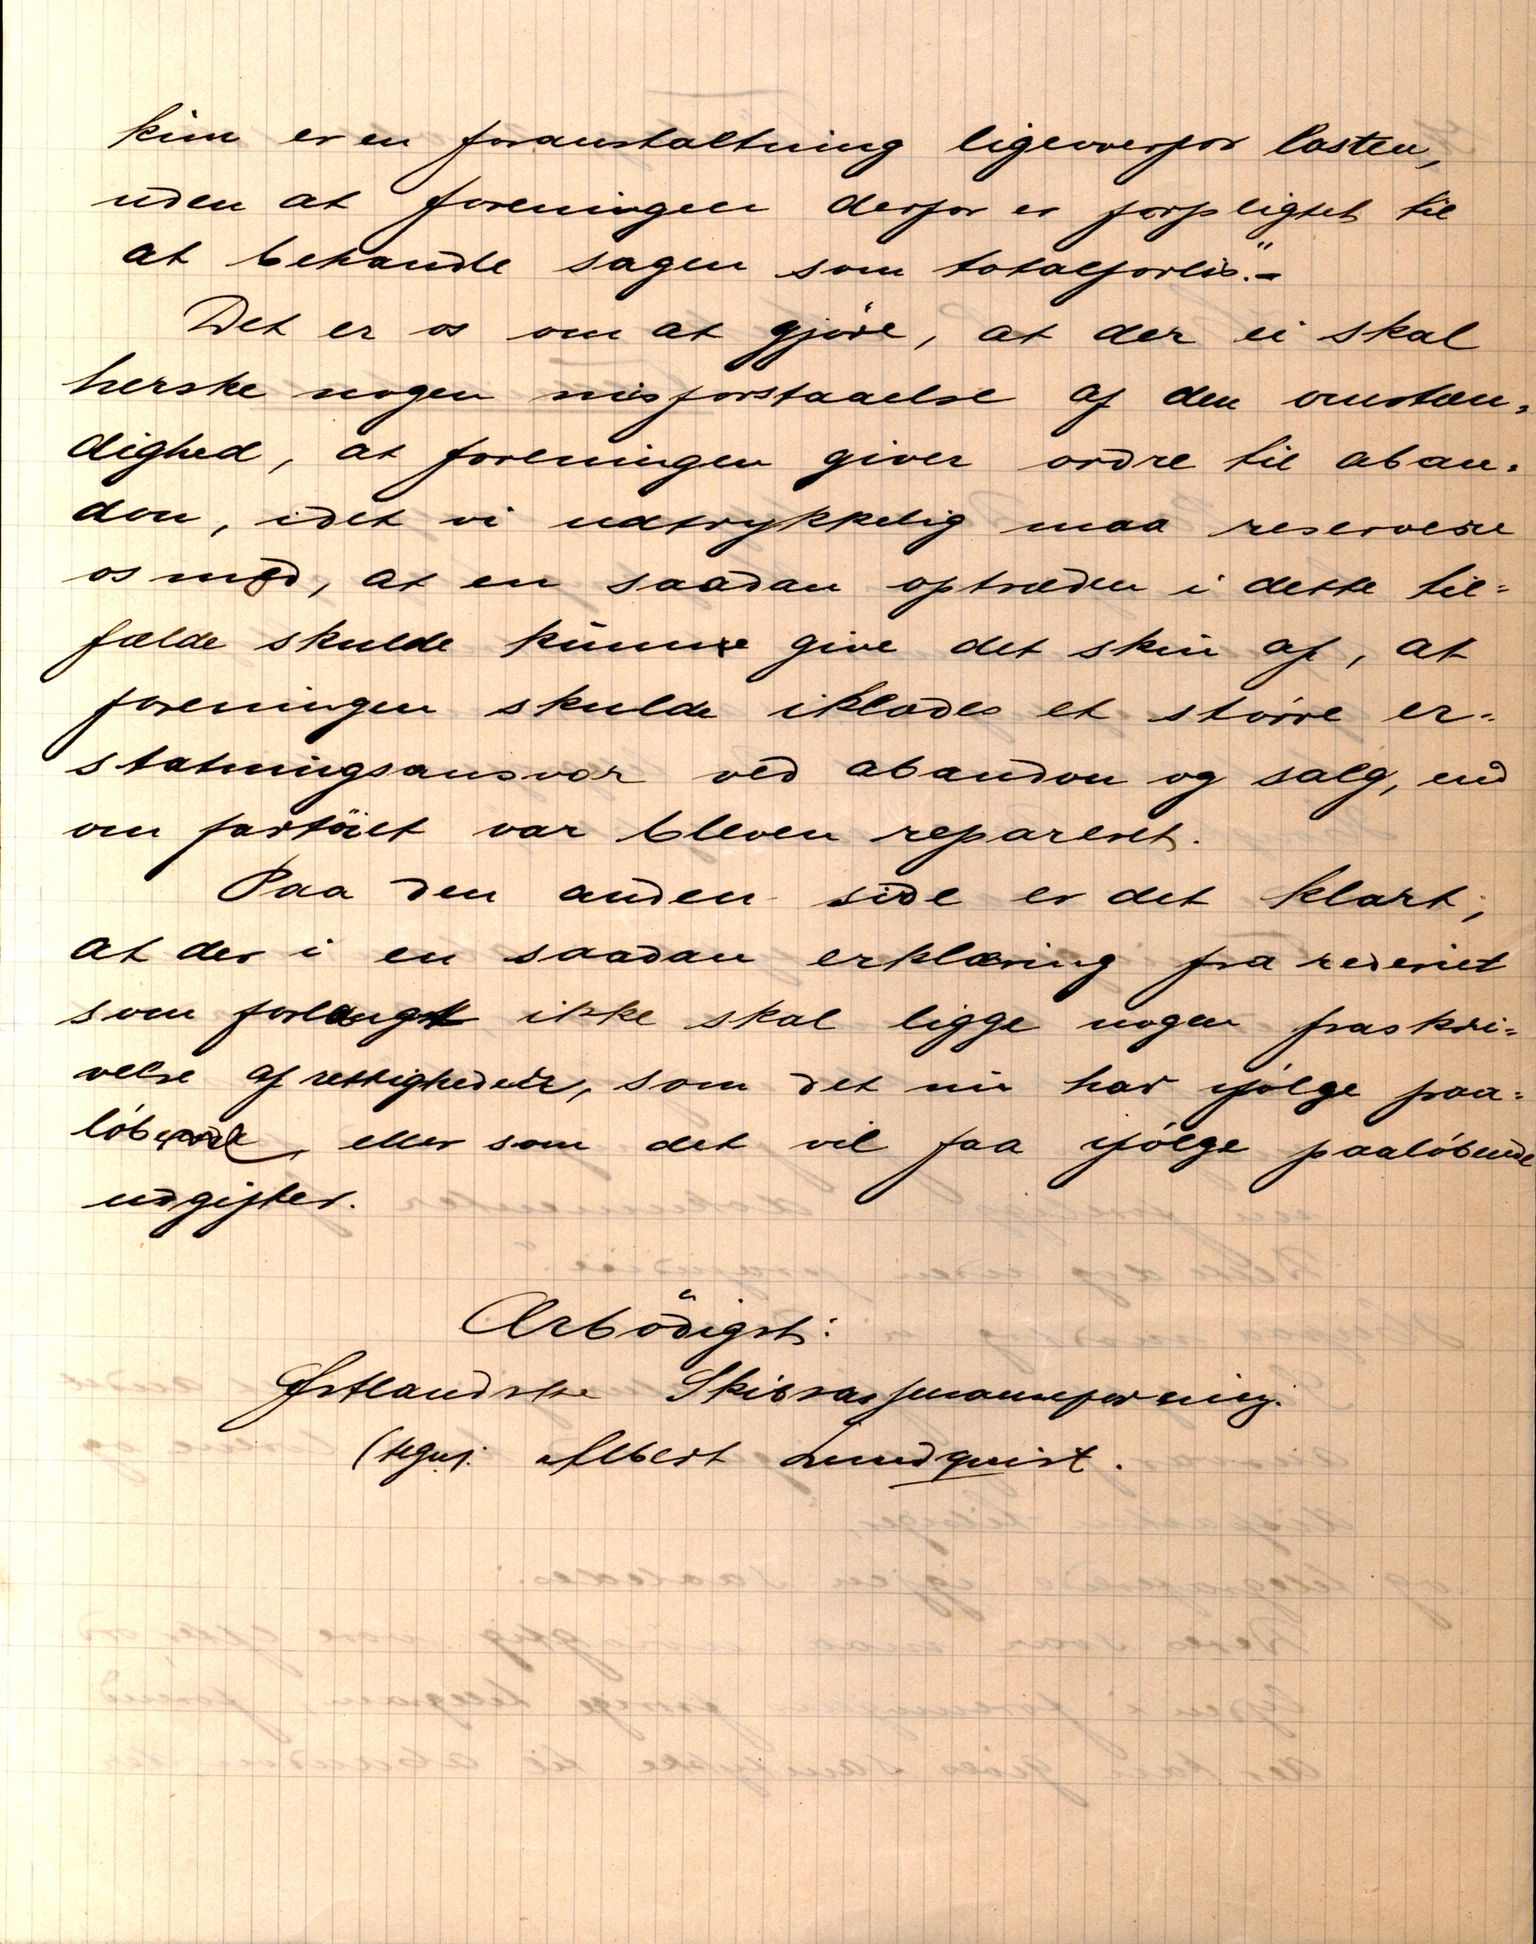 kun er en foranstaltning ligeoverfor lasten,
uden at foreningen derfor er forpligtet til
at behandle sagen som totalforlis".-
Det er os om at gjøre, at der ei skal
herske nogen misforstaaelse af den omstæn=
dighed, at foreningen giver ordre til aban=
don, idet vi udtrykkelig maa reservere
os mod, at en saadan optræden i dette til=
fælde skulde kunne give det skin af, at
foreningen skulde iklædes et større er=
statningsansvar ved abandon og salg, end
om fartøiet var bleven repareret.
Paa den anden side er det klart,
at der i en saadan erklæring fra rederiet
som forlangt ikke skal ligge nogen fraskri=
velse af rettigheder, som det nu har ifølge paa=
løbende, eller som det vil faa ifølge paaløbende
udgifter.
Ærbødigst:
Østlandske Skibsassuranceforening.
(tegn). Albert Lundquist.